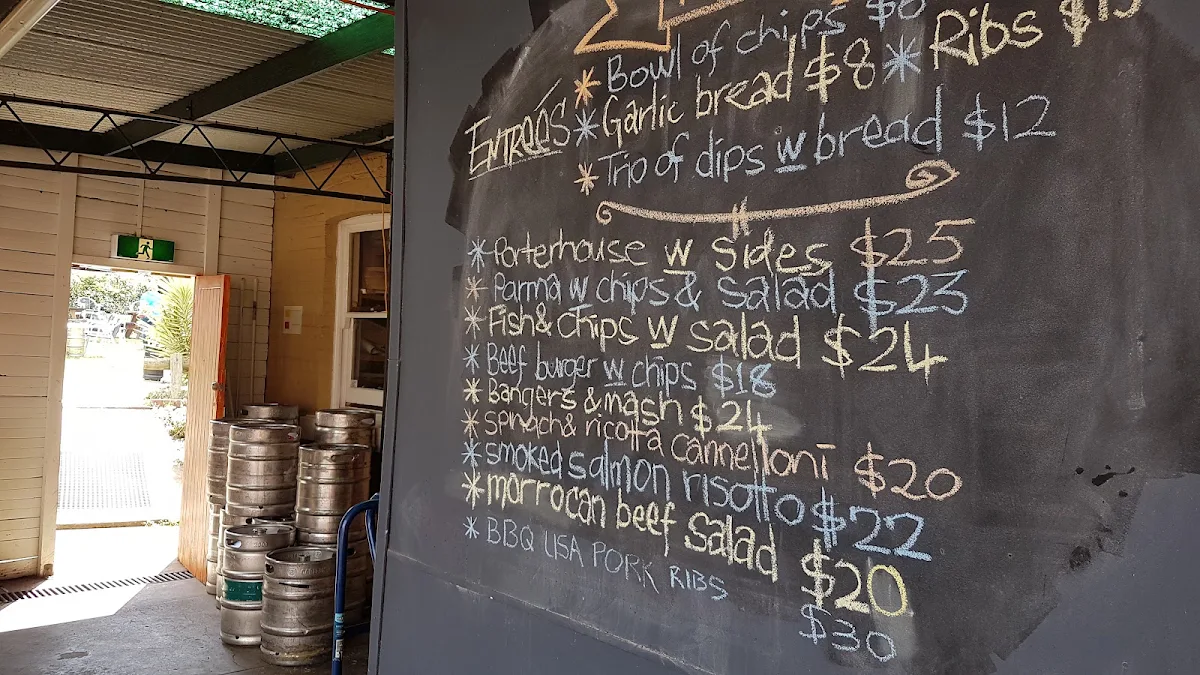 * Bowl of chips $8 * Ribs $15
Entreés * Garlic bread $8
* Trio of dips w bread $12
* Porterhouse w Sides $25
* Parma w chips & salad $23
* Fish & chips w salad $24
* Beef burger w chips $18
* Bangers & mash $24
* spinach & ricotta cannelloni $20
* smoked salmon risotto $22
* morrocan beef salad $20
* BBQ USA PORK RIBS $30